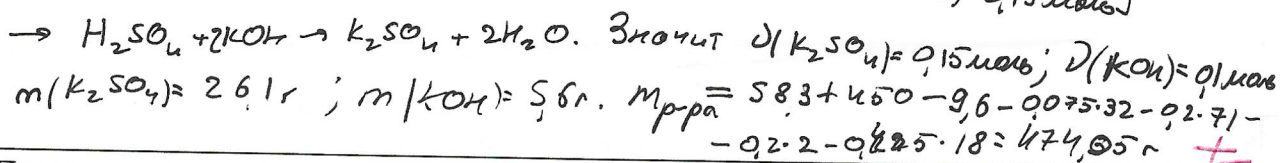 → H₂SO₄ + 2KOH → K₂SO₄ + 2H₂O. Значит ν(K₂SO₄) = 0,15 моль; ν(KOH) = 0,1 моль
m(K₂SO₄) = 26,1 г; m(KOH) = 5,6 г. m р-ра = 58,3 + 450 - 9,6 - 0,075·32 - 0,2·71 -
- 0,2·2 - 0,425·18 = 474,05 г +